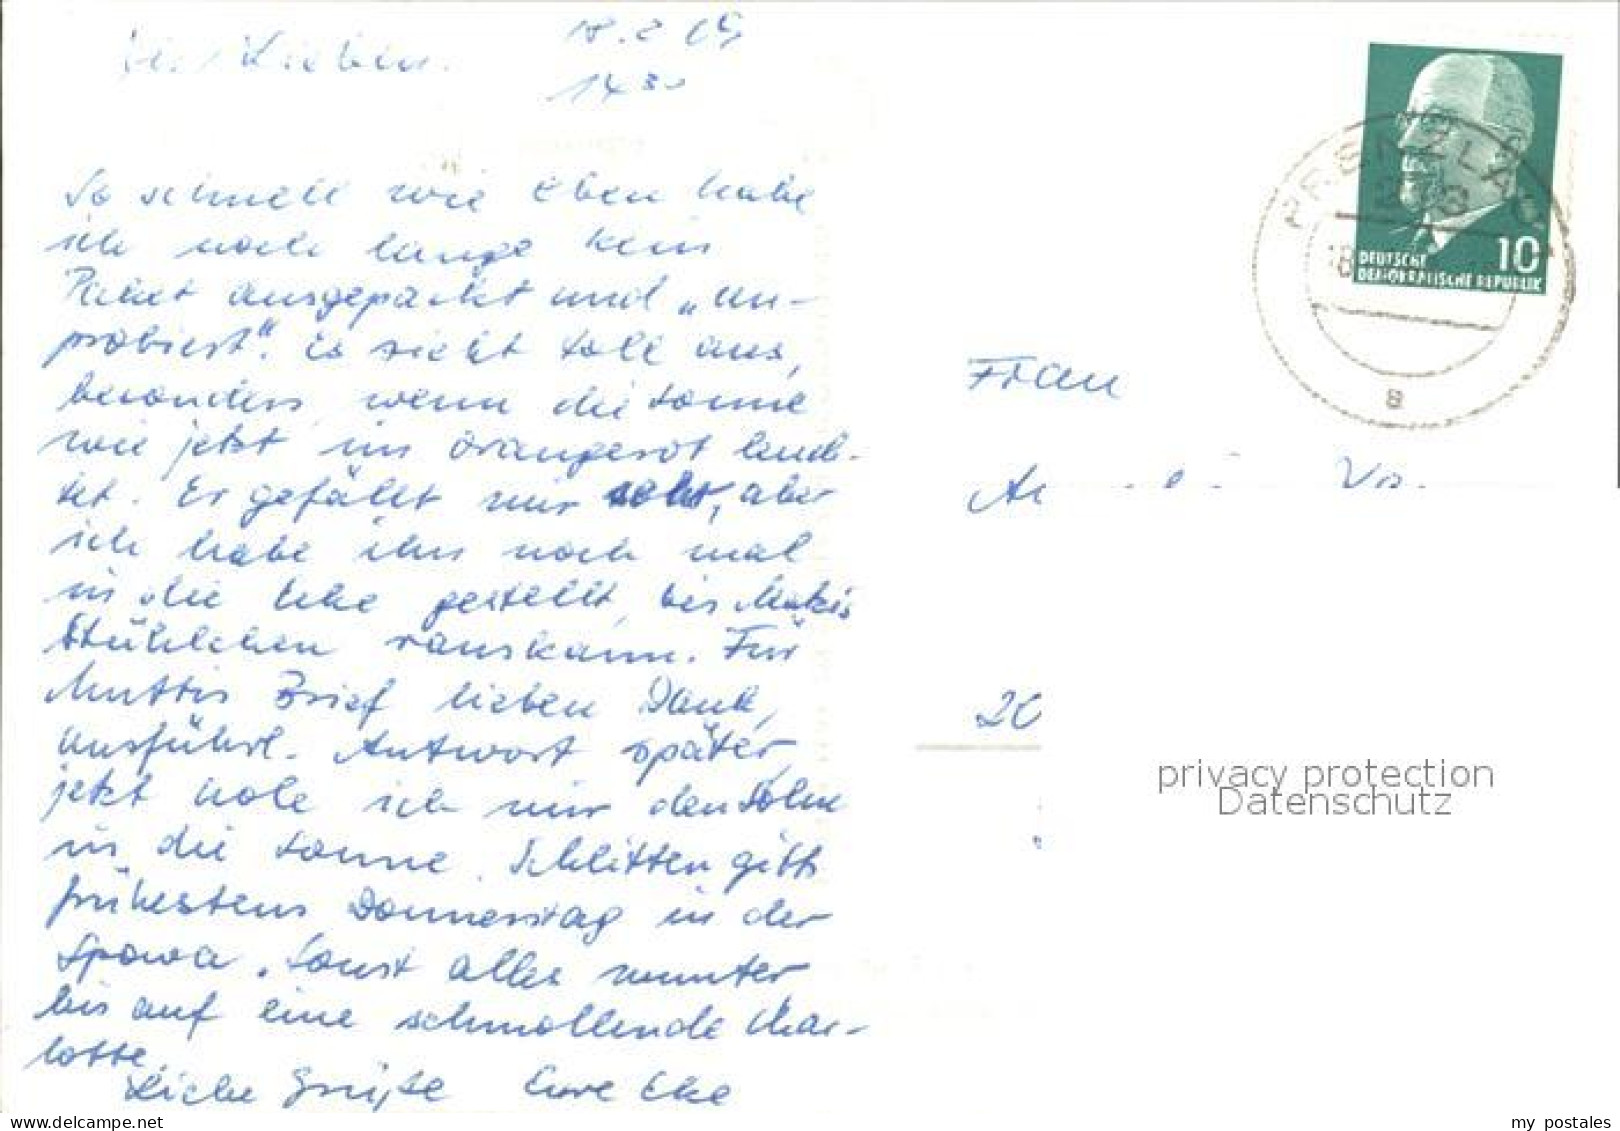 Lieben.
18.2.69
14 30
So schnell wie eben habe
ich noch lange kein
Paket ausgepackt und „an-
probiert“. Es sieht toll aus,
besonders, wenn die Sonne
wie jetzt im orangerot leuch-
tet. Er gefällt mir sehr, aber
ich habe ihn noch mal
in die Ecke gestellt, bis
Stühlchen rauskann. Für
Muttis Brief lieben Dank,
ausführl. Antwort später,
jetzt hole ich mir den Sohn
in die Sonne. Schlitten gibts
frühestens Donnerstag in der
Spowa. Sonst alles munter
bis auf eine schmollende Char-
lotte.
Liebe Grüße Eure Eke
PRENZLAU
213
18
a
10
DEUTSCHE
DEMOKRATISCHE REPUBLIK
Frau
20
privacy protection
Datenschutz
delcampe.net
my_postales